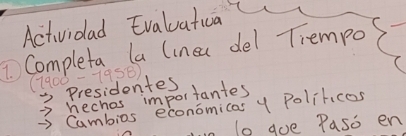 Actividad Evaluativa
1. Completa la linea del Tiempo
(1900 - 1958)
→ Presidentes
→ hechos importantes
→ Cambios económicos y Políticos
lo que Pasó en